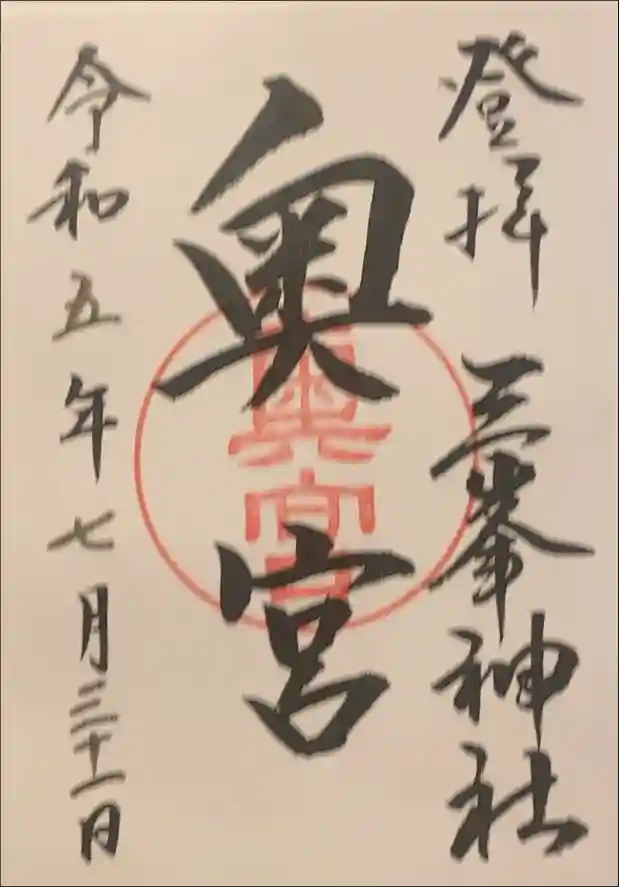 登拝 三峯神社
奥宮
奥宮
令和五年七月三十一日